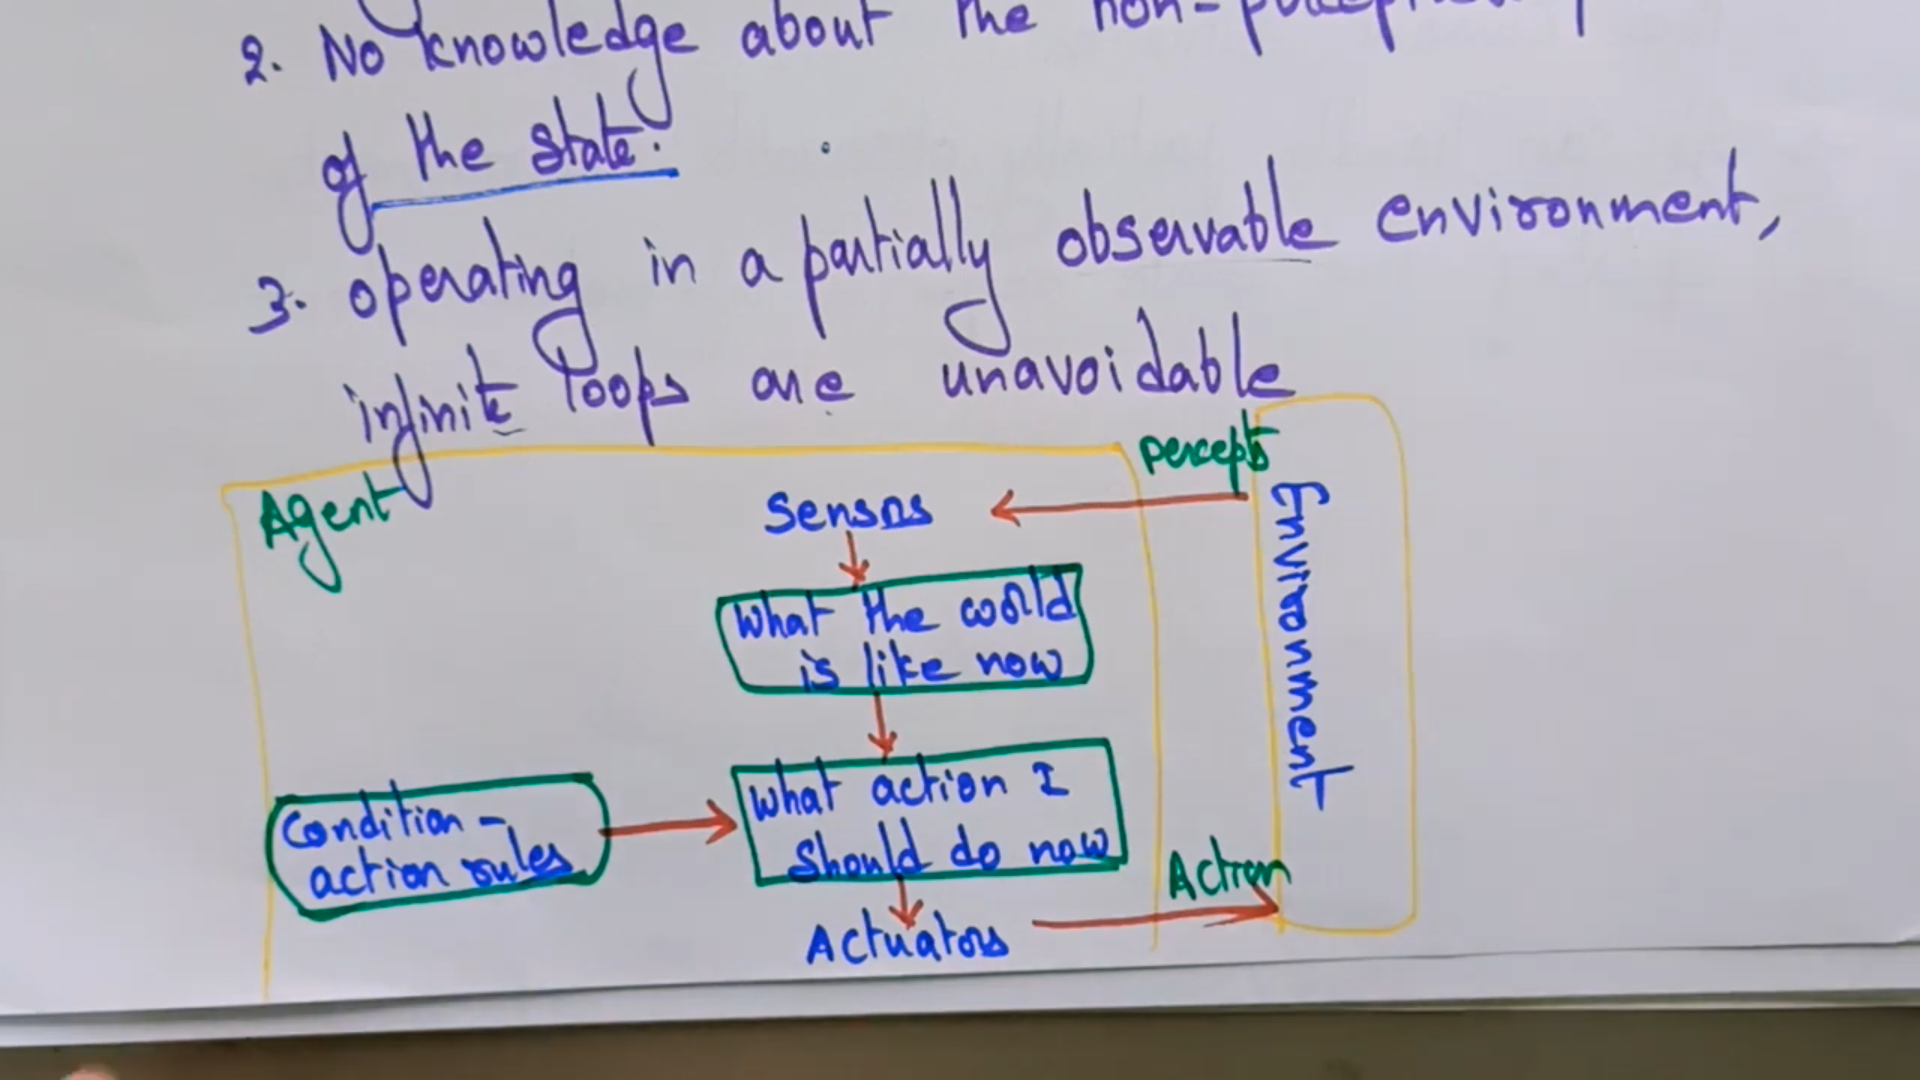 2. No knowledge about the
of the state.
3. operating in a partially observable environment,
infinite loops are unavoidable
Agent
percepts
Sensors
What the world
is like now
Environment
Condition -
action rules
What action I
should do now
Action
Actuators